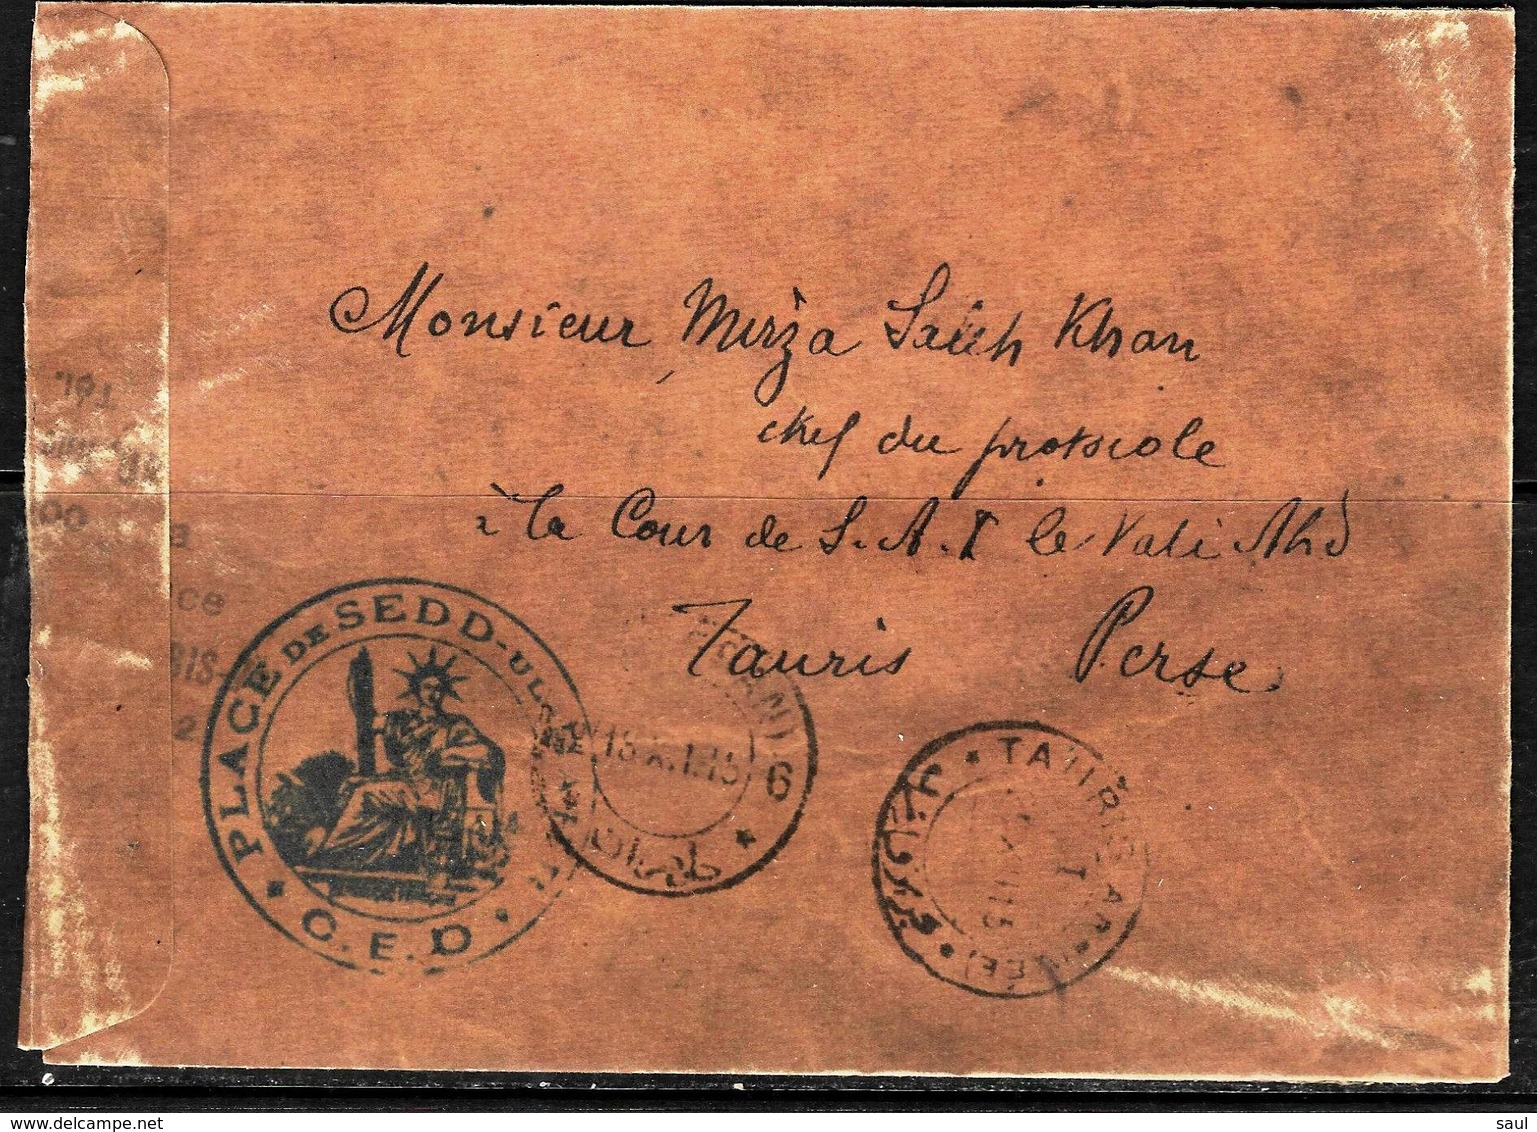 Monsieur Mirza Saleh Khan
chef du protocole
à la Cour de S.A.I le Vali Ahd
Tauris Perse
PLACE DE SEDD-UL-
C.E.D
13.XI.15
6
TAURIS ARRIVÉE
www.delcampe.net
saul